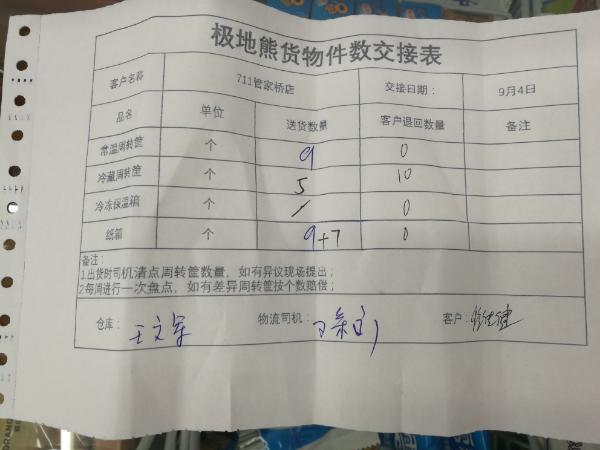 极地熊货物件数交接表
客户名称 711管家桥店 交接日期： 9月4日
品名 单位 送货数量 客户退回数量 备注
常温周转筐 个 9 0
冷藏周转筐 个 5 10
冷冻保温箱 个 / 0
纸箱 个 9+7 0
备注：
1.出货时司机清点周转筐数量，如有异议现场提出；
2.每周进行一次盘点，如有差异周转筐按个数赔偿；
仓库： 王文军 物流司机： 客户：